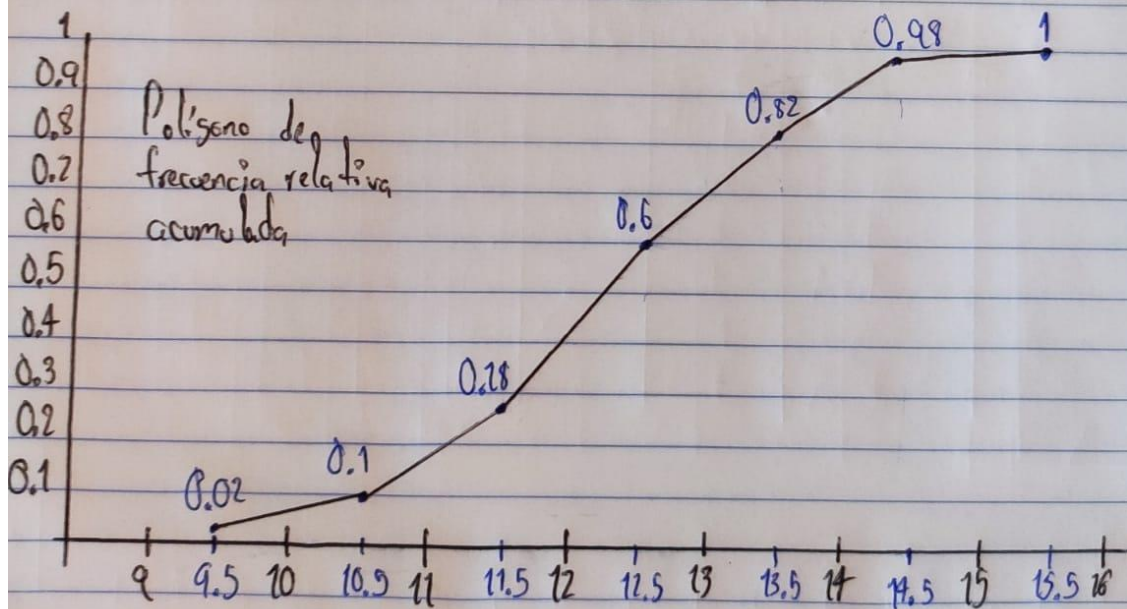 1
0.9
0.8
0.7
0.6
0.5
0.4
0.3
0.2
0.1
Polígono de
frecuencia relativa
acumulada
0.02
0.1
0.28
0.6
0.82
0.98
1
9 9.5 10 10.5 11 11.5 12 12.5 13 13.5 14 14.5 15 15.5 16